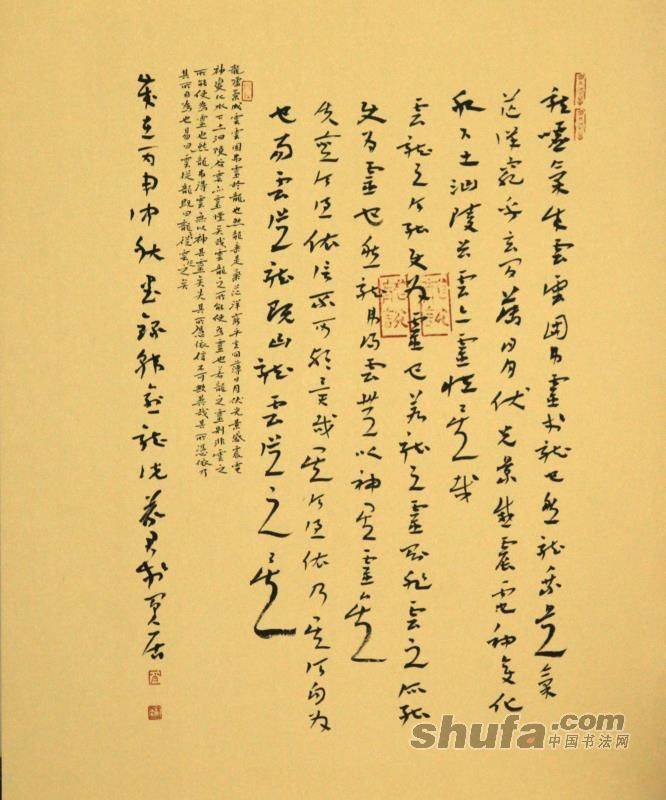 龍噓氣成雲雲固弗靈於龍也然龍乘是氣
茫洋窮乎玄間薄日月伏光景感震電神變化
水下土汩陵谷雲亦靈怪矣哉
雲龍之所能使為靈也若龍之靈則非雲之所能
使為靈也然龍弗得雲無以神其靈矣
失其所憑依信不可歟異哉其所憑依乃其所自為
也易曰雲從龍既曰龍雲從之矣
龍噓氣成雲雲固弗靈於龍也然龍乘是氣茫洋窮乎玄間薄日月伏光景感震電
神變化水下土汩陵谷雲亦靈怪矣哉雲龍之所能使為靈也若龍之靈則非雲之
所能使為靈也然龍弗得雲無以神其靈矣失其所憑依信不可歟異哉其所憑依乃
其所自為也易曰雲從龍既曰龍雲從之矣
歲在丙申仲秋書錄韓愈龍說
龍說
shufa.com
中国书法网